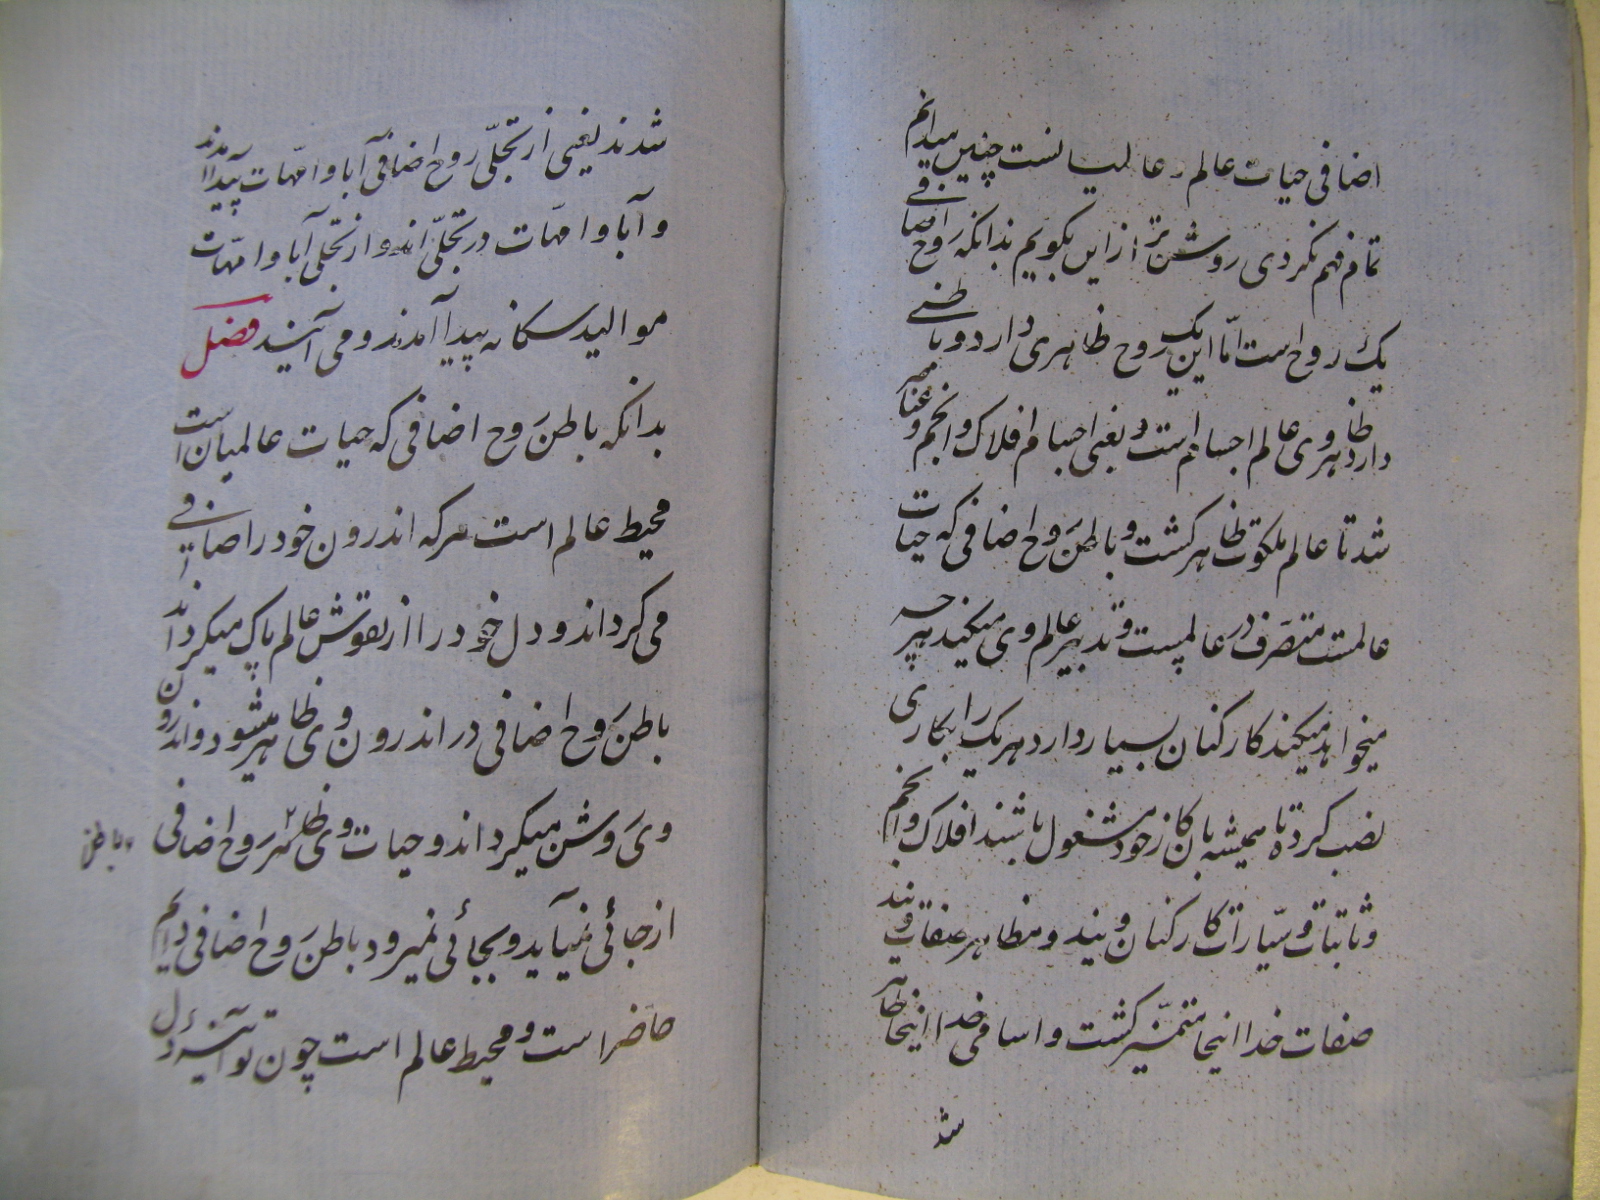 اضافی حیات عالم و عالمیانست چنین میدانم
تمام فهم نکردی روشن تر ازین بگویم بدانکه روح اضافی
یک روح است امّا این یک روح ظاهری دارد و باطنی
دارد ظاهر وی عالم اجسام است و یعنی اجسام افلاک و انجم و عناصر
شد تا عالم ملکوت ظاهر گشت و باطن روح اضافی که حیات
عالمست متصرّف در عالمست و تدبیر عالم وی میکند هر چه
میخواهد میکند کارکنان بسیار دارد هر یک را بکاری
نصب کرده تا همیشه بان کار خود مشغول باشند افلاک و انجم
و ثابتات و سیّارات کارکنان ویند و مظاهر صفات ویند
صفات خدا اینجا متمیّز گشت و اسامی خدا اینجا ظاهر
شد
شدند یعنی از تجلّی روح اضافی آبا و امّهات پیدا آمدند
و آبا و امّهات در تجلّی اند و از تجلی آبا و امّهات
موالید سه کانه پیدا آمدند و می آیند فصل
بدانکه باطن روح اضافی که حیات عالمیان است
محیط عالم است هرکه اندرون خود را صافی
می کرداند و دل خود را از نقوش عالم پاک میکرداند
باطن روح اضافی در اندرون وی ظاهر میشود و اندرون
وی روشن میکرداند و حیات وی ظاهر روح اضافی
و باطن
از جائی نمیآید و بجائی نمیرود باطن روح اضافی دایم
حاضر است و محیط عالم است چون تو آینه دل